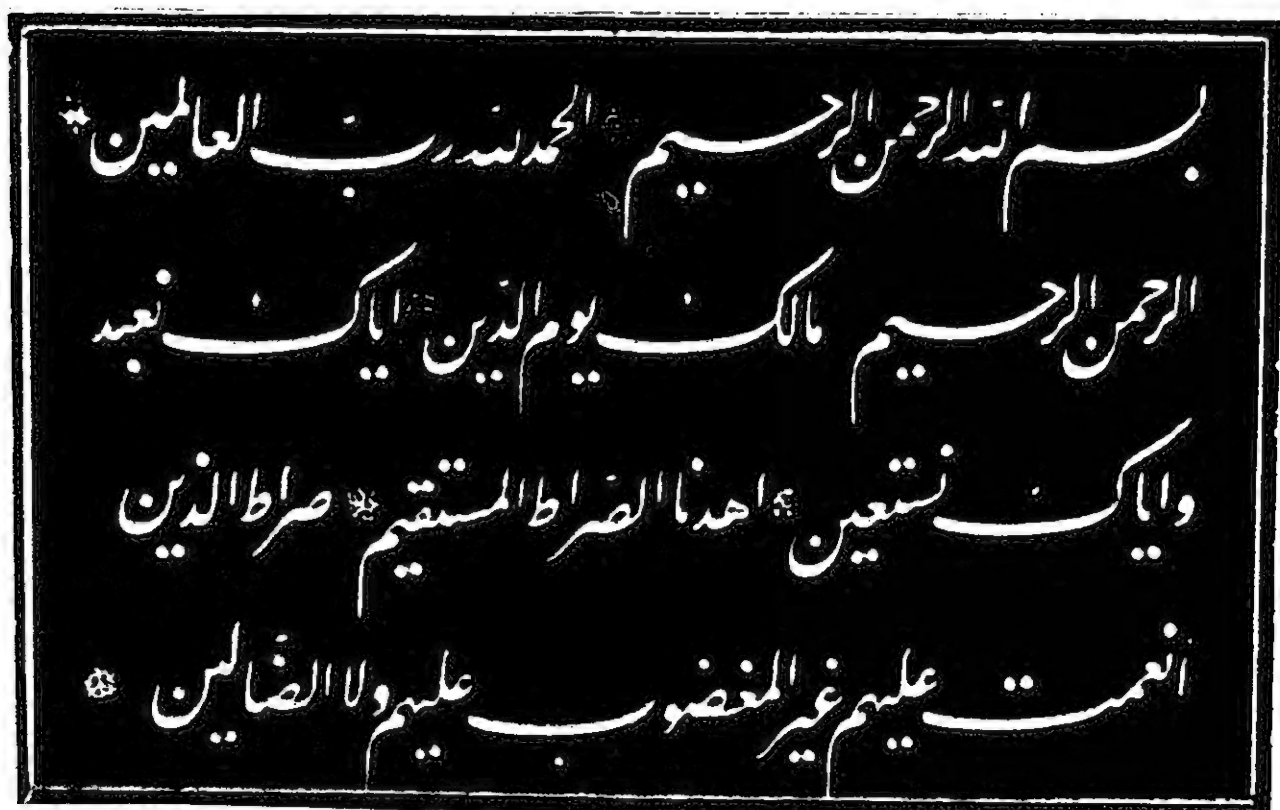 بسم الله الرحمن الرحيم الحمد لله رب العالمين
الرحمن الرحيم مالك يوم الدين اياك نعبد
واياك نستعين اهدنا الصراط المستقيم صراط الذين
انعمت عليهم غير المغضوب عليهم ولا الضالين